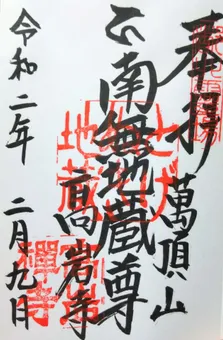 奉拝
萬頂山
南無地蔵尊
高岩寺
令和二年
二月九日